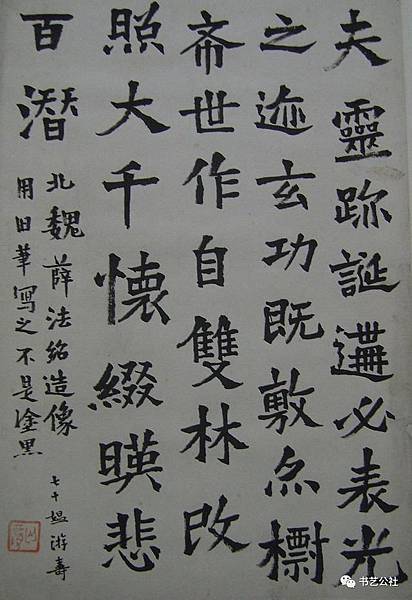 夫靈跡誕遘必表光
之迹玄功既敷尒檦
希世作自雙林改
照大千懷綴暎悲
百潛
北魏薛法紹造像
用旧筆冩之不是塗黑
七十媪游壽
书艺公社